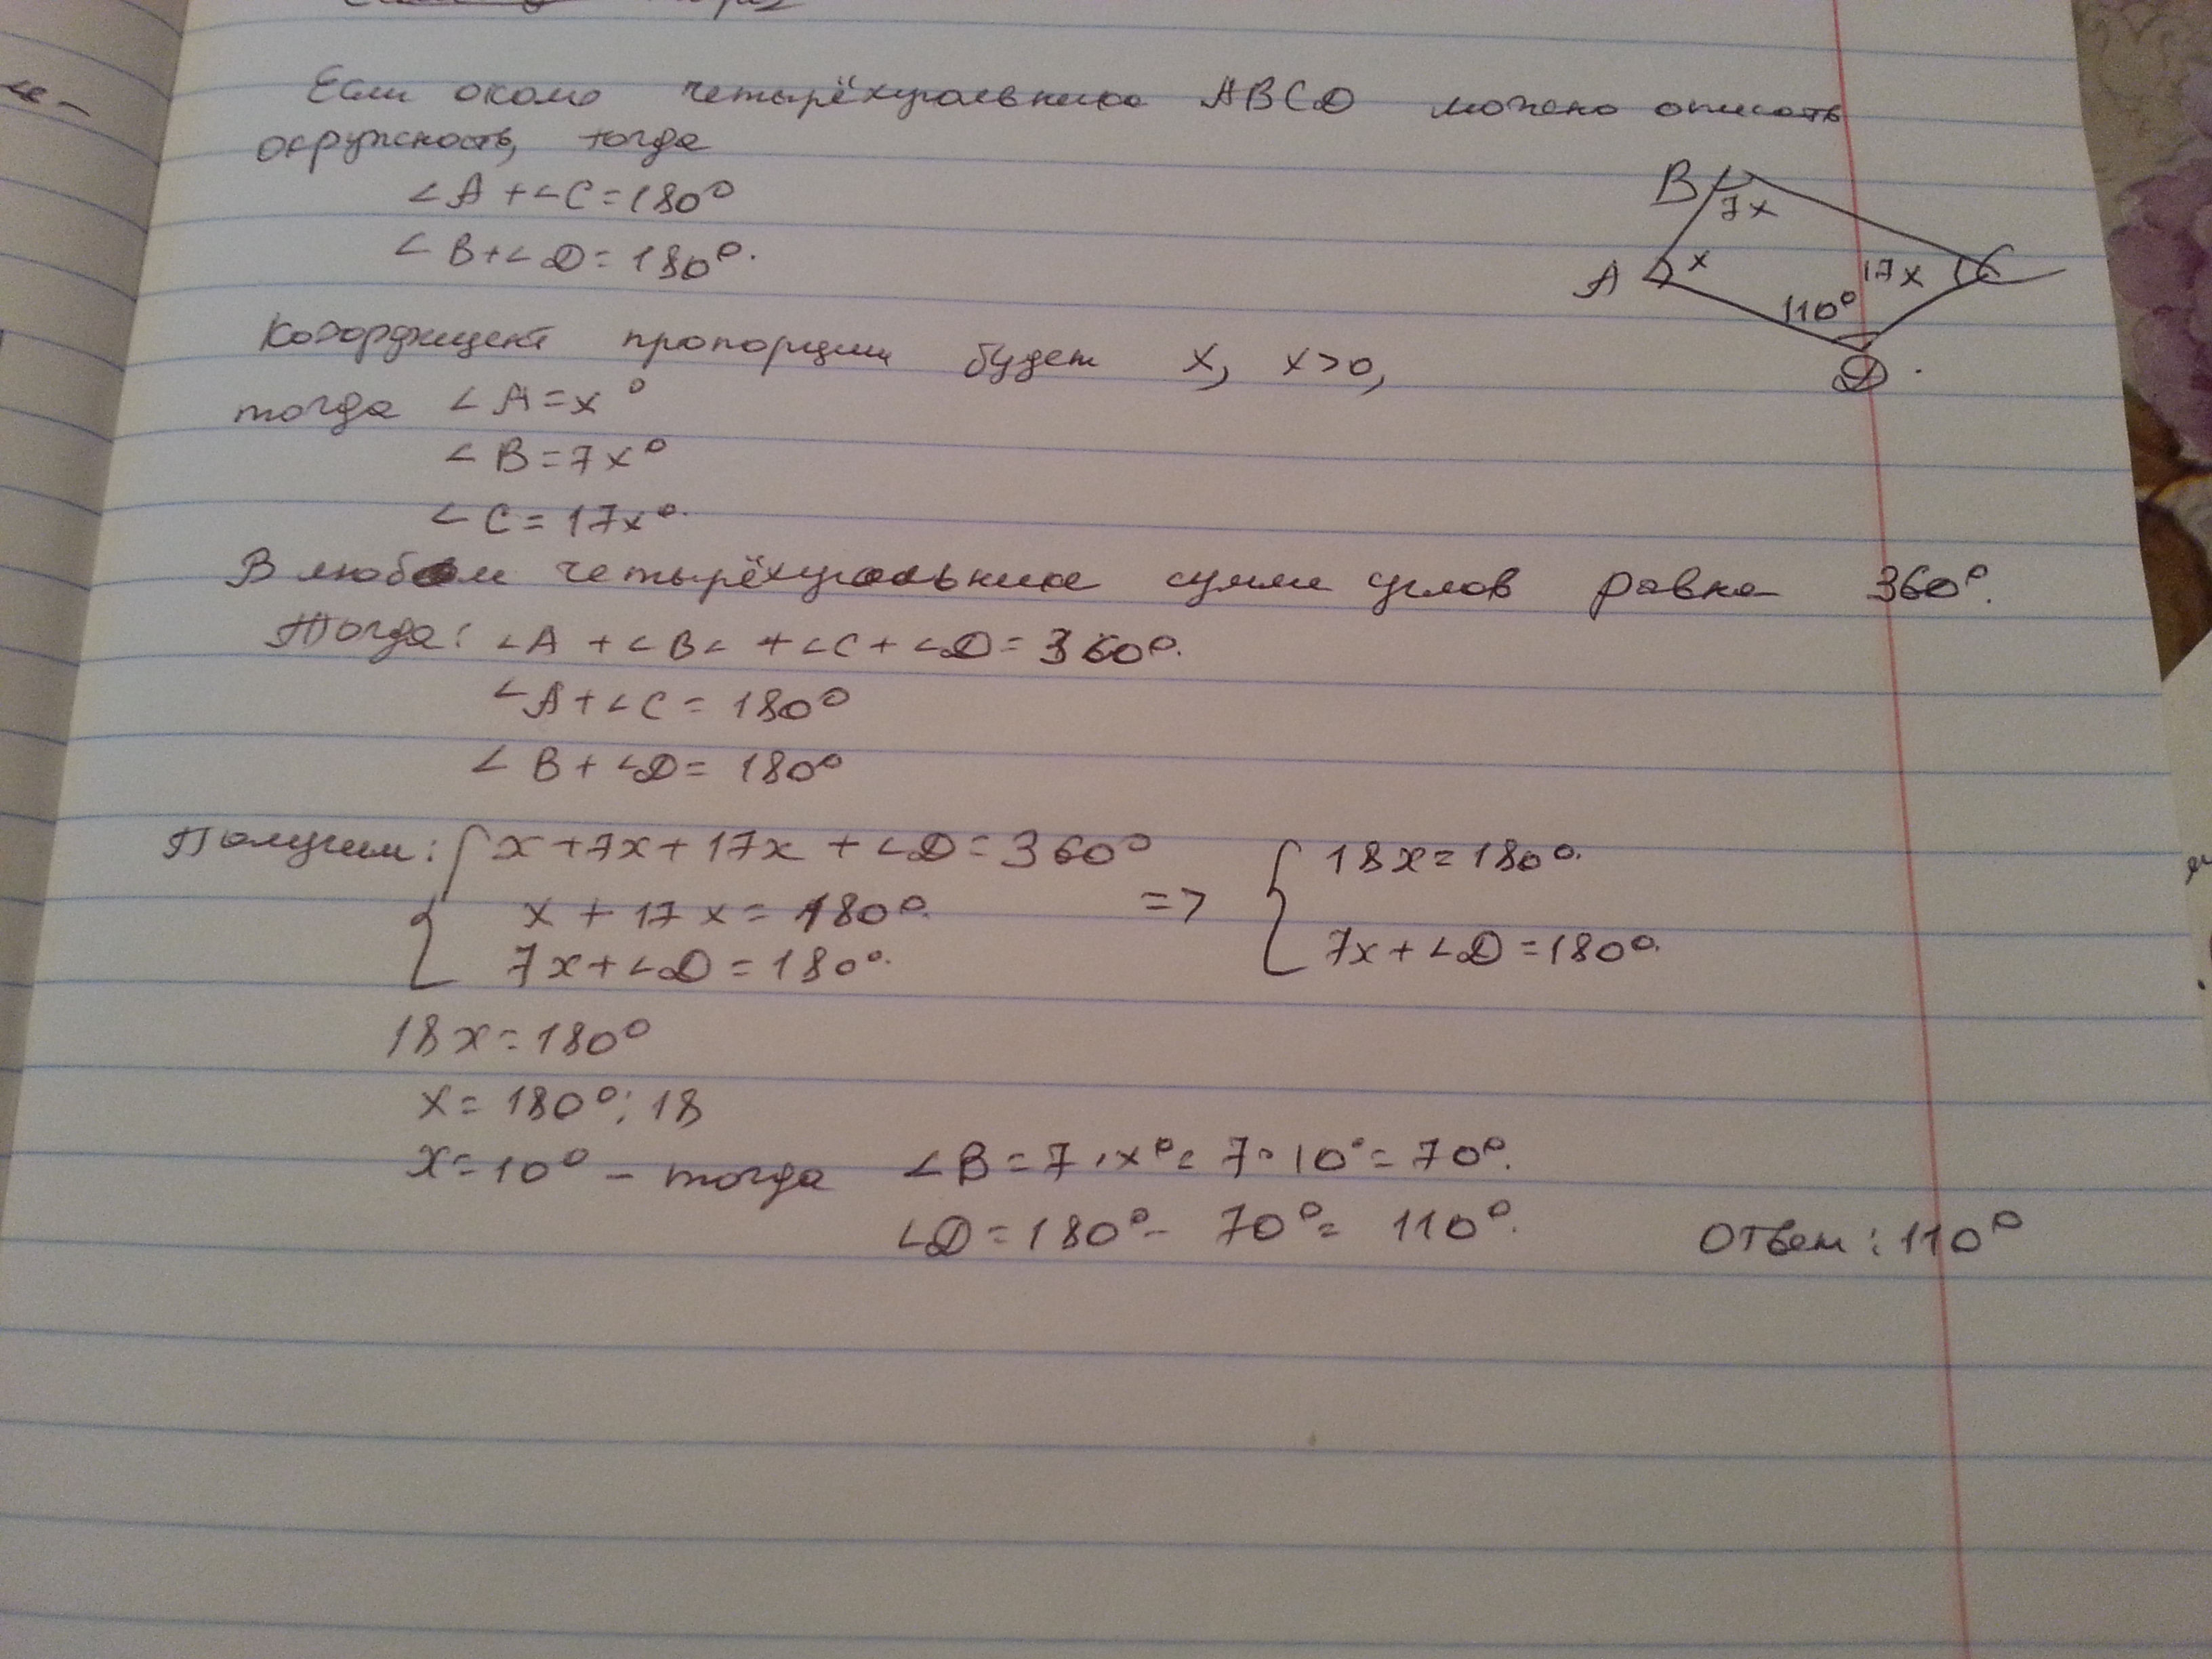 Если около четырёхугольника ABCD можно описать
окружность, тогда
∠A + ∠C = 180°
∠B + ∠D = 180°.
B 7x
A x 17x C
110°
D
Коэффициент пропорции будет x, x>0,
тогда ∠A = x°
∠B = 7x°
∠C = 17x°.
В любом четырёхугольнике сумма углов равна 360°.
Тогда: ∠A + ∠B∠ + ∠C + ∠D = 360°.
∠A + ∠C = 180°
∠B + ∠D = 180°
Получим: { x + 7x + 17x + ∠D = 360°
x + 17x = 180°. => { 18x = 180°.
7x + ∠D = 180°. 7x + ∠D = 180°.
18x = 180°
x = 180° : 18
x = 10° – тогда ∠B = 7·x° = 7·10° = 70°.
∠D = 180° – 70° = 110°. Ответ: 110°